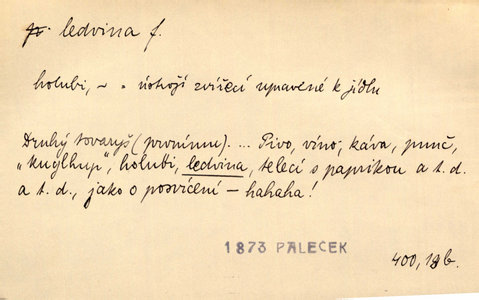 ledvina f.
holubi, ~ = ústrojí zvířecí upravené k jídlu
Druhý tovaryš (prvnímu). ... Pivo, víno, káva, punč,
„kuglhup", holubi, ledvina, telecí s paprikou a t. d.
a t. d., jako o posvícení — hahaha!
1873 PALEČEK
400, 19b.